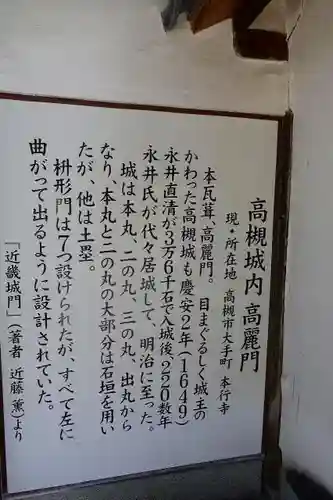 高槻城内 高麗門
現・所在地 高槻市大手町 本行寺
本瓦葺、高麗門。 目まぐるしく城主の
かわった高槻城も慶安2年(1649)
永井直清が3万6千石で入城後、220数年
永井氏が代々居城して、明治に至った。
城は本丸、二の丸、三の丸、出丸から
なり、本丸と二の丸の大部分は石垣を用い
たが、他は土塁。
枡形門は7つ設けられたが、すべて左に
曲がって出るように設計されていた。
「近畿城門」(著者 近藤 薫)より